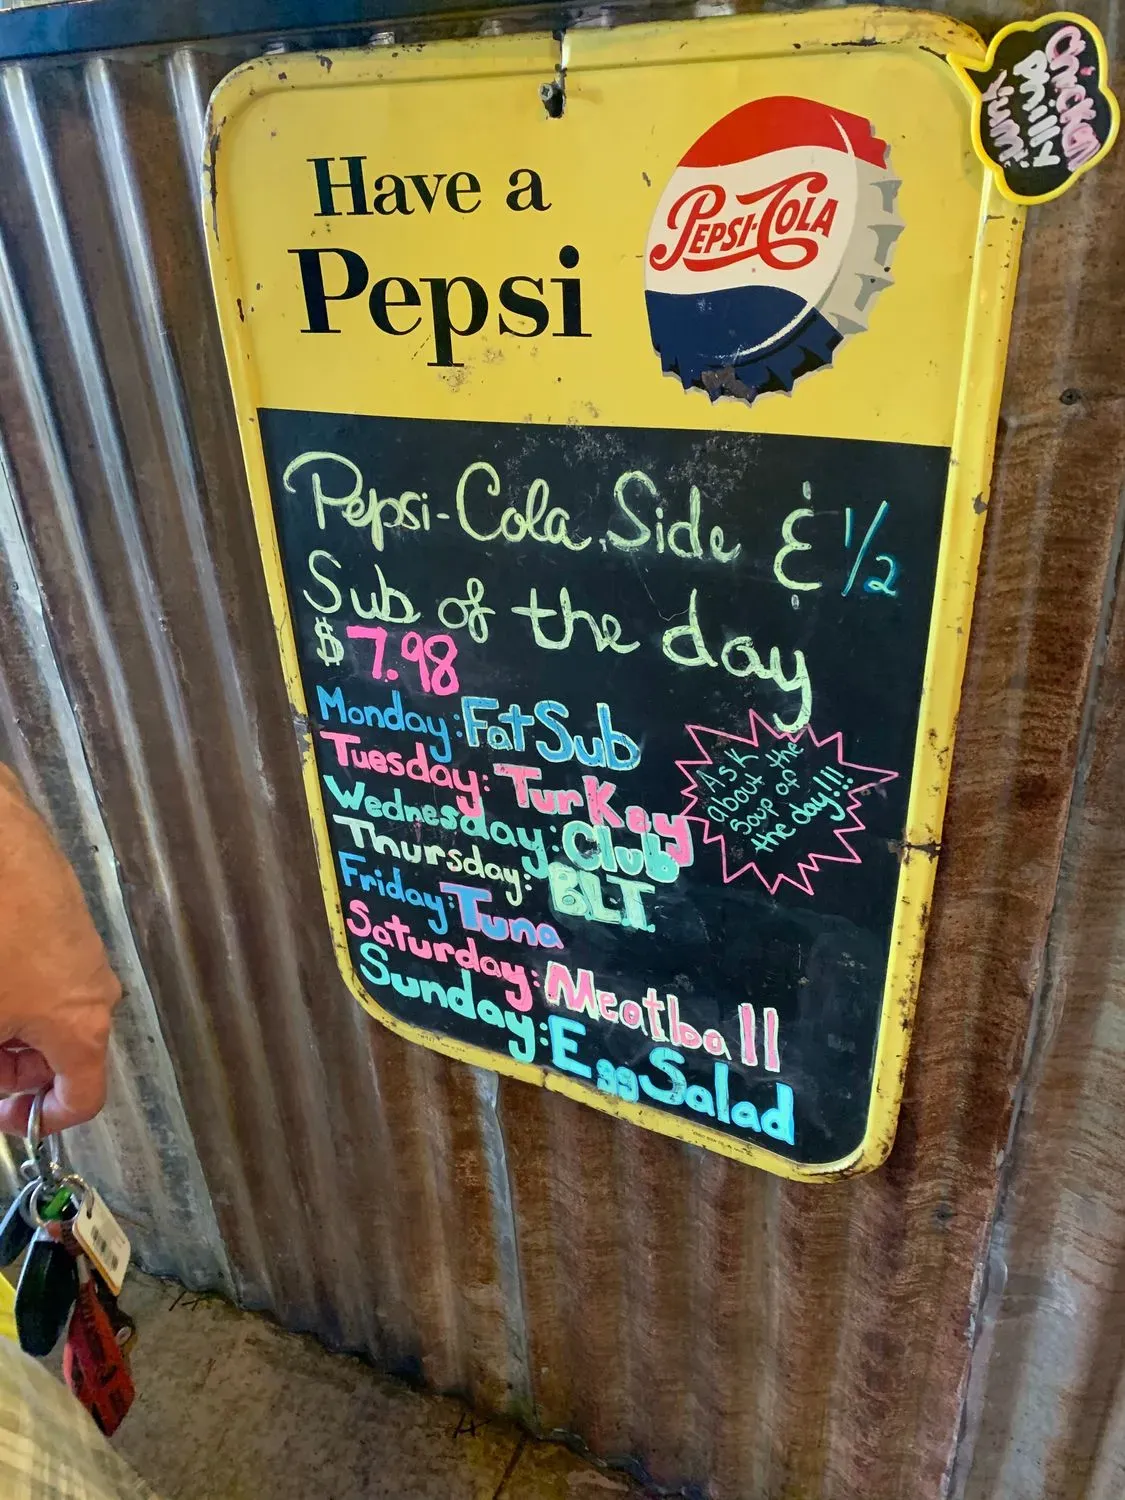 Have a
Pepsi
PEPSI-COLA
chicken
philly
yum!
Pepsi-Cola, Side & 1/2
Sub of the day
$7.98
Monday: Fat Sub
Tuesday: Turkey
Wednesday: Club
Thursday: BLT
Friday: Tuna
Saturday: Meatball
Sunday: Egg Salad
Ask
about the
soup of
the day!!!!